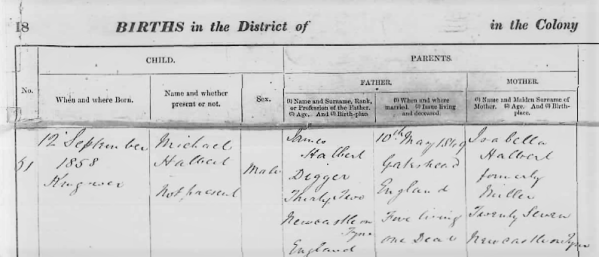 18 BIRTHS in the District of in the Colony
CHILD. PARENTS.
No. When and where Born. Name and whether present or not. Sex. FATHER. MOTHER.
(1) Name and Surname, Rank, or Profession of the Father. (2) Age. And (3) Birth-place.
(1) When and where married. (2) Issue living and deceased.
(1) Name and Maiden Surname of Mother. (2) Age. And (3) Birth-place.
12 September
1858
Michael
Halbert
Not present
Male
James
Halbert
Digger
Thirty Two
Newcastle on
Tyne
England
10th May 1849
Gateshead
England
Five living
one Dead
Isabella
Halbert
formerly
Miller
Twenty Seven
Newcastle on Tyne